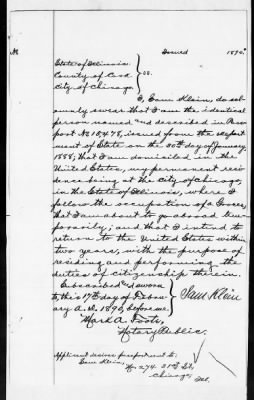 Issued 1890.
State of Illinois
County of Cook ss.
City of Chicago
I, Sam Klein, do sol-
emnly swear that I am the identical
person named and described in Pass-
port No. 18,478, issued from the Depart-
ment of State on the 30th day of January,
1888; that I am domiciled in the
United States, my permanent resi-
dence being at the City of Chicago,
in the State of Illinois, where I
follow the occupation of a Grocer;
that I am about to go abroad tem-
porarily; and that I intend to
return to the United States within
two years, with the purpose of
residing and performing the
duties of citizenship therein.
Subscribed and sworn
to, this 17th day of Febru-
ary A.D. 1890, before me. Sam Klein
Mark A. Foote,
Notary Public.
Applicant desires passport sent to:
Sam Klein,
No. 274. 31st St.,
Chicago,
Ills.